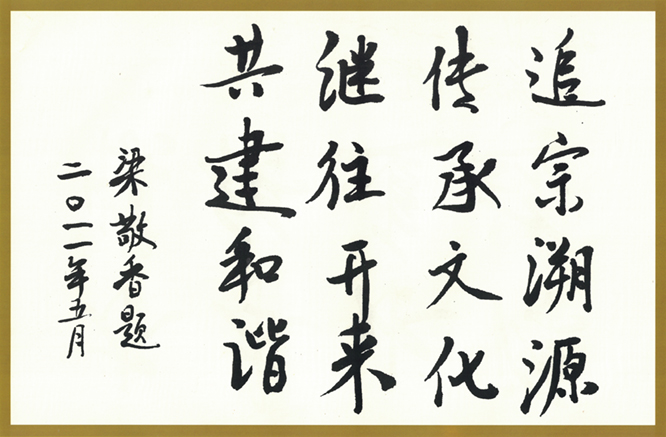 追宗溯源
传承文化
继往开来
共建和谐
梁敬香题
二〇一一年五月